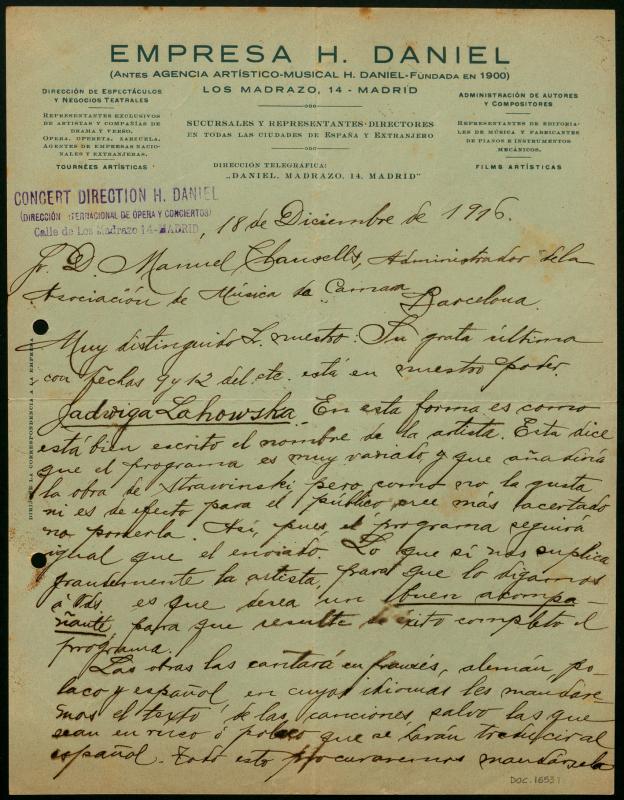 EMPRESA H. DANIEL
(ANTES AGENCIA ARTÍSTICO-MUSICAL H. DANIEL-FUNDADA EN 1900)
LOS MADRAZO, 14 - MADRID
DIRECCIÓN DE ESPECTÁCULOS
Y NEGOCIOS TEATRALES
REPRESENTANTES EXCLUSIVOS
DE ARTISTAS Y COMPAÑÍAS DE
DRAMA Y VERSO.
OPERA, OPERETA, ZARZUELA,
AGENTES DE EMPRESAS NACIO-
NALES Y EXTRANJERAS.
TOURNÉES ARTÍSTICAS
SUCURSALES Y REPRESENTANTES-DIRECTORES
EN TODAS LAS CIUDADES DE ESPAÑA Y EXTRANJERO
DIRECCIÓN TELEGRÁFICA:
„DANIEL, MADRAZO, 14, MADRID"
ADMINISTRACIÓN DE AUTORES
Y COMPOSITORES
REPRESENTANTES DE EDITORIA-
LES DE MÚSICA Y FABRICANTES
DE PIANOS E INSTRUMENTOS
MECÁNICOS.
FILMS ARTÍSTICAS
CONCERT DIRECTION H. DANIEL
(DIRECCIÓN INTERNACIONAL DE OPERA Y CONCIERTOS)
Calle de Los Madrazo 14-MADRID
18 de Diciembre de 1916.
Sr. D. Manuel Clausells, Administrador de la
Asociación de Música da Camara
Barcelona.
Muy distinguido S. nuestro: Su grata última
con fechas 9 y 12 del cte. está en nuestro poder.
Jadwiga Lahowska. En esta forma es como
está bien escrito el nombre de la artista. Esta dice
que el programa es muy variado y que añadiría
la obra de Strawinski pero como no la gusta
ni es de efecto para el público cree más acertado
no ponerla. Así, pues, el programa seguirá
igual que el enviado. Lo que sí nos suplica
la artista, para que lo digamos
á Vds. es que desea un buen acompa-
ñante, para que resulte de éxito completo el
programa.
Las obras las cantará en francés, alemán, po-
laco y español, en cuyos idiomas les mandare-
mos el texto de las canciones, salvo las que
sean en ruso ó polaco que se harán traducir al
español. Todo esto procuraremos mandársela
DIRÍJASE LA CORRESPONDENCIA A LA EMPRESA
DOC. 1653